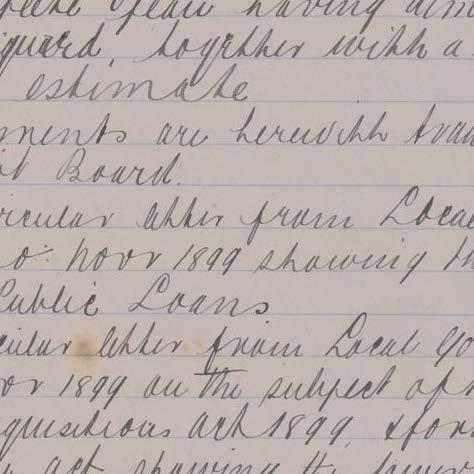 having
together with a
estimate
ments are herewith tran
Board.
rcular letter from Local
Novr 1899 showing th
Public Loans
cular letter from Local Go
or 1899 on the subject of t
quisitions act 1899, & for
act showing the